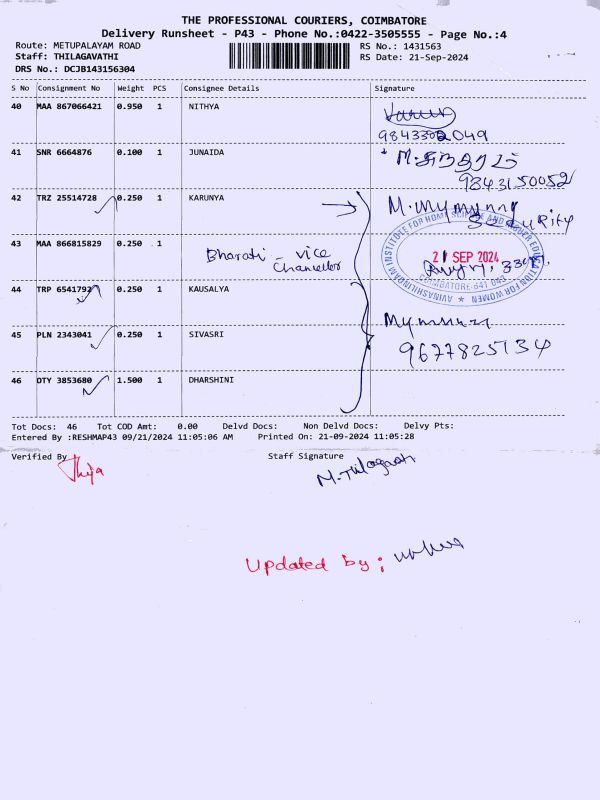 THE PROFESSIONAL COURIERS, COIMBATORE
Delivery Runsheet - P43 - Phone No.:0422-3505555 - Page No.:4
Route: METUPALAYAM ROAD RS No.: 1431563
Staff: THILAGAVATHI RS Date: 21-Sep-2024
DRS No.: DCJB143156304
S No Consignment No Weight PCS Consignee Details Signature
40 MAA 867066421 0.950 1 NITHYA
9843302049
41 SNR 6664876 0.100 1 JUNAIDA
9843150052
42 TRZ 25514728 0.250 1 KARUNYA
SECURITY
43 MAA 866815829 0.250 1 Bharati - vice
Chancellor
AVINASHILINGAM INSTITUTE FOR HOME SCIENCE AND HIGHER EDUCATION FOR WOMEN
21 SEP 2024
COIMBATORE-641 043
44 TRP 6541792 0.250 1 KAUSALYA
45 PLN 2343041 0.250 1 SIVASRI
9677825134
46 DTY 3853680 1.500 1 DHARSHINI
Tot Docs: 46 Tot COD Amt: 0.00 Delvd Docs: Non Delvd Docs: Delvy Pts:
Entered By :RESHMAP43 09/21/2024 11:05:06 AM Printed On: 21-09-2024 11:05:28
Verified By Staff Signature
Thija M.Thilagavathi
Updated by: